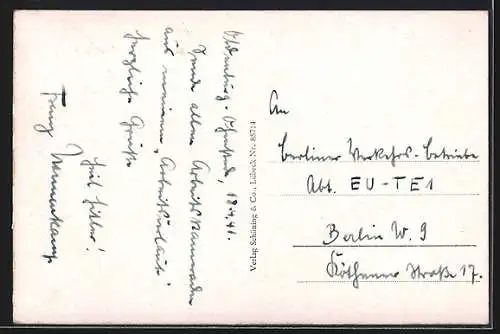 Oldenburg-Ostholst., 18.4.41.
Sende allen Arbeitskameraden
aus meinem „Arbeitsurlaub"
herzliche Grüße
Heil Hitler!
Franz Nennenkamp
Verlag Schöning & Co., Lübeck Nr. 85714
An
Berliner Verkehrs-Betriebe
Abt. EU-TE1
Berlin W. 9
Köthener Straße 17.